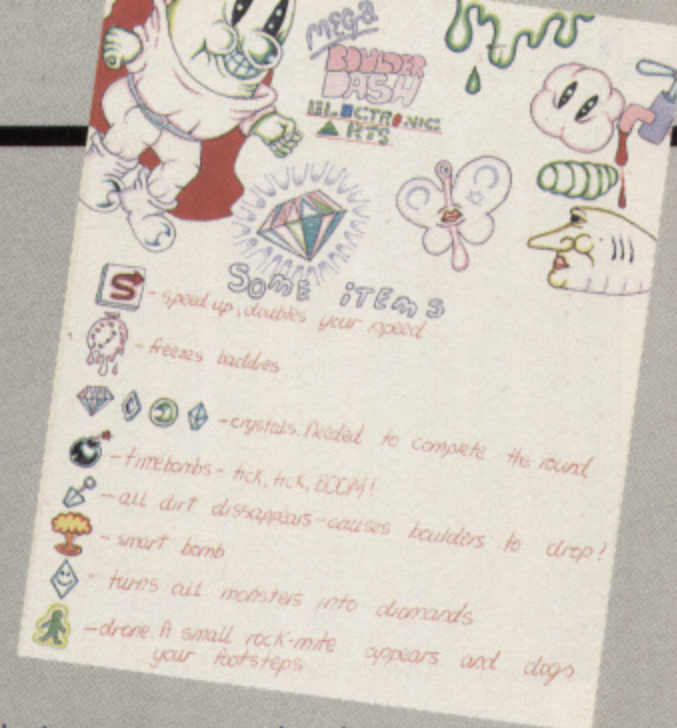 MEGA
BOULDER
DASH
ELECTRONIC
ARTS
SOME ITEMS
S - speed up, doubles your speed
- freezes baddies
- crystals. Needed to complete the round
- timebombs - tick, tick, BOOM!
- all dirt dissappears - causes boulders to drop!
- smart bomb
- turns all monsters into diamands
- drone. A small rock-mite appears and dogs
your footsteps